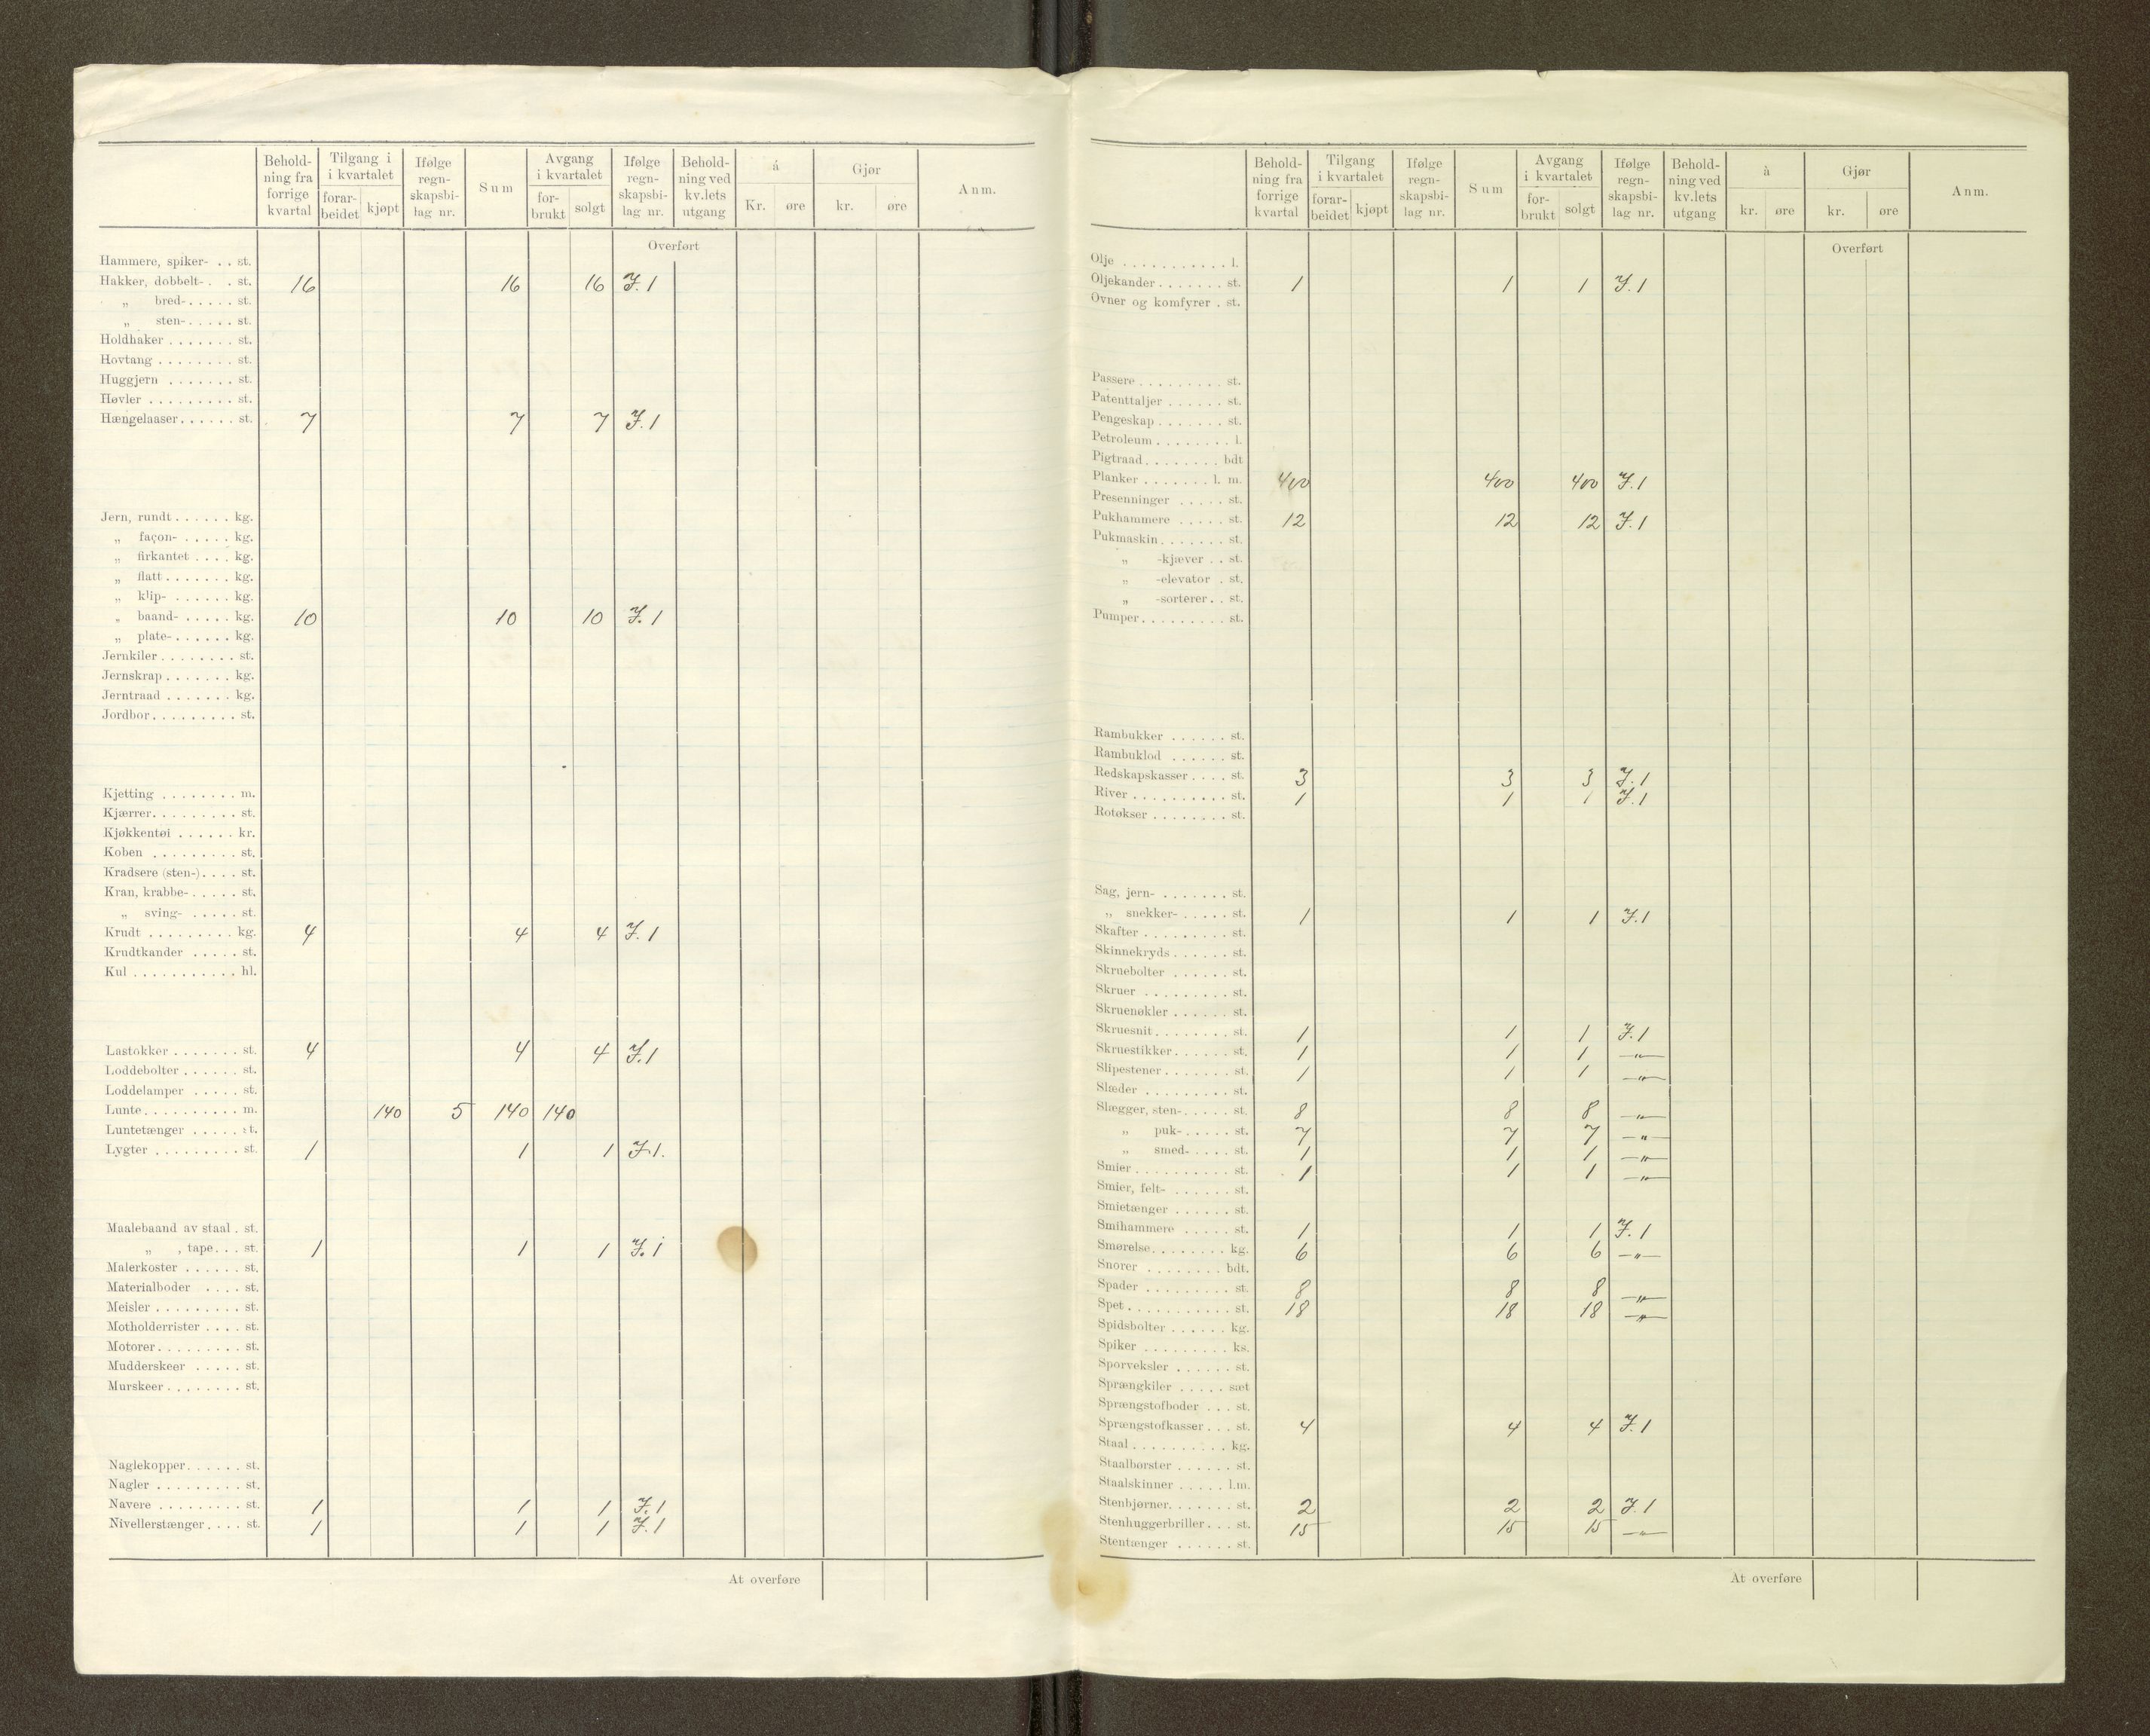 Behold- ning fra forrige kvartal | Tilgang i i kvartalet | forar- beidet | kjøpt | Ifølge regn- skapsbi- lag nr. | Sum | Avgang i kvartalet | for- brukt | solgt | Ifølge regn- skapsbi- lag nr. | Behold- ning ved kv.lets utgang | à | Kr. | øre | Gjør | kr. | øre | Anm.
Overført
Hammere, spiker- . . st.
Hakker, dobbelt- . . st. 16 16 16 J. 1
„ bred- . . . . . st.
„ sten- . . . . . st.
Holdhaker . . . . . . . st.
Hovtang . . . . . . . . st.
Huggjern . . . . . . . st.
Høvler . . . . . . . . . st.
Hængelaaser . . . . . . st. 7 7 7 J. 1
Jern, rundt . . . . . . kg.
„ façon- . . . . . kg.
„ firkantet . . . . kg.
„ flatt . . . . . . . kg.
„ klip- . . . . . . kg.
„ baand- . . . . . kg. 10 10 10 J. 1
„ plate- . . . . . . kg.
Jernkiler . . . . . . . . st.
Jernskrap . . . . . . . kg.
Jerntraad . . . . . . . kg.
Jordbor . . . . . . . . . st.
Kjetting . . . . . . . . m.
Kjærrer . . . . . . . . . st.
Kjøkkentøi . . . . . . kr.
Koben . . . . . . . . . st.
Kradsere (sten-) . . . . st.
Kran, krabbe- . . . . . st.
„ sving- . . . . . st.
Krudt . . . . . . . . . kg. 4 4 4 J. 1
Krudtkander . . . . . st.
Kul . . . . . . . . . . . hl.
Lastokker . . . . . . . st. 4 4 4 J. 1
Loddebolter . . . . . . st.
Loddelamper . . . . . st.
Lunte . . . . . . . . . . m. 140 5 140 140
Luntetænger . . . . . st.
Lygter . . . . . . . . . st. 1 1 1 J. 1.
Maalebaand av staal . st.
„ „ tape . . . st. 1 1 1 J. 1
Malerkoster . . . . . . st.
Materialboder . . . . st.
Meisler . . . . . . . . . st.
Motholderrister . . . . st.
Motorer . . . . . . . . . st.
Mudderskeer . . . . . st.
Murskeer . . . . . . . . st.
Naglekopper . . . . . . st.
Nagler . . . . . . . . . st.
Navere . . . . . . . . . st. 1 1 1 J. 1
Nivellerstænger . . . . st. 1 1 1 J. 1
At overføre
Behold- ning fra forrige kvartal | Tilgang i kvartalet | forar- beidet | kjøpt | Ifølge regn- skapsbi- lag nr. | Sum | Avgang i kvartalet | for- brukt | solgt | Ifølge regn- skapsbi- lag nr. | Behold- ning ved kv.lets utgang | à | kr. | øre | Gjør | kr. | øre | Anm.
Overført
Olje . . . . . . . . . . . l.
Oljekander . . . . . . . st. 1 1 1 J. 1
Ovner og komfyrer . st.
Passere . . . . . . . . . st.
Patenttaljer . . . . . . st.
Pengeskap . . . . . . . st.
Petroleum . . . . . . . . l.
Pigtraad . . . . . . . . bdt
Planker . . . . . . . l. m. 400 400 400 J. 1
Presenninger . . . . . st.
Pukhammere . . . . . st. 12 12 12 J. 1
Pukmaskin . . . . . . . st.
„ -kjæver . . st.
„ -elevator . st.
„ -sorterer . . st.
Pumper . . . . . . . . . st.
Rambukker . . . . . . st.
Rambuklod . . . . . . st.
Redskapskasser . . . . st. 3 3 3 J. 1
River . . . . . . . . . . st. 1 1 1 J. 1
Rotøkser . . . . . . . . st.
Sag, jern- . . . . . . . st.
„ snekker- . . . . . st. 1 1 1 J. 1
Skafter . . . . . . . . . st.
Skinnekryds . . . . . . st.
Skruebolter . . . . . . st.
Skruer . . . . . . . . . st.
Skruenøkler . . . . . . st.
Skruesnit . . . . . . . . st. 1 1 1 J. 1
Skruestikker . . . . . . st. 1 1 1 —„—
Slipestener . . . . . . . st. 1 1 1 —„—
Slæder . . . . . . . . . st.
Slægger, sten- . . . . . st. 8 8 8 —„—
„ puk- . . . . . st. 7 7 7 —„—
„ smed- . . . . st. 1 1 1 —„—
Smier . . . . . . . . . . st. 1 1 1 —„—
Smier, felt- . . . . . . st.
Smietænger . . . . . . st.
Smihammere . . . . . st. 1 1 1 J. 1
Smørelse . . . . . . . . kg. 6 6 6 —„—
Snorer . . . . . . . . bdt.
Spader . . . . . . . . . st. 8 8 8 —„—
Spet . . . . . . . . . . . st. 18 18 18 —„—
Spidsbolter . . . . . . kg.
Spiker . . . . . . . . . ks.
Sporveksler . . . . . . st.
Sprængkiler . . . . . sæt
Sprængstofboder . . . st.
Sprængstofkasser . . . st. 4 4 4 J. 1
Staal . . . . . . . . . . kg.
Staalbørster . . . . . . st.
Staalskinner . . . . . l.m.
Stenbjørner . . . . . . . st. 2 2 2 J. 1
Stenhuggerbriller . . . st. 15 15 15 —„—
Stentænger . . . . . . st.
At overføre